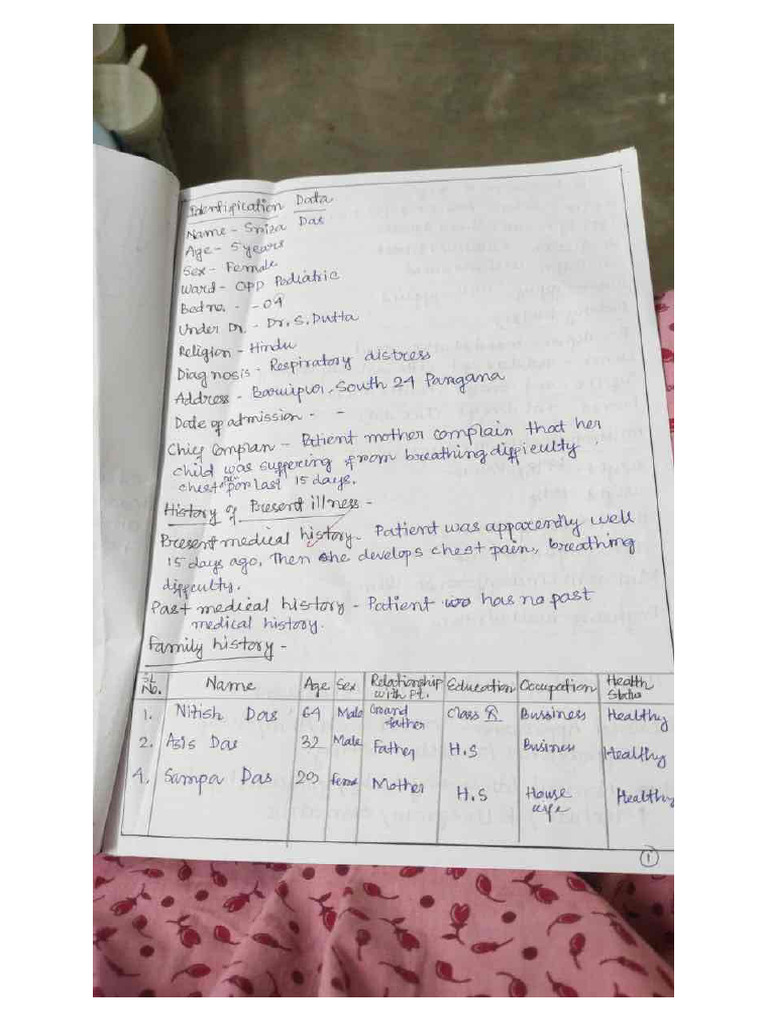 Identification Data
Name - Sniza Das
Age - 5 years
Sex - Female
Ward - OPP Pediatric
Bed no. - - 04
Under Dr. - Dr. S. Dutta
Religion - Hindu
Diagnosis - Respiratory distress
Address - Baruipur, South 24 Pangana
Date of admission - -
Chief Complan - Patient mother complain that her
child was suffering from breathing difficulty
chest pain for last 15 days.
History of Present illness -
Present medical history - Patient was apparently well
15 days ago, Then she develops chest pain, breathing
difficulty.
Past medical history - Patient has no past
medical history.
Family history -
SL No. Name Age Sex Relationship with Pt. Education Occupation Health Status
1. Nitish Das 64 Male Grand father Class Bussiness Healthy
2. Asis Das 32 Male Father H.S Business Healthy
4. Sampa Das 29 Female Mother H.S House wife Healthy
1